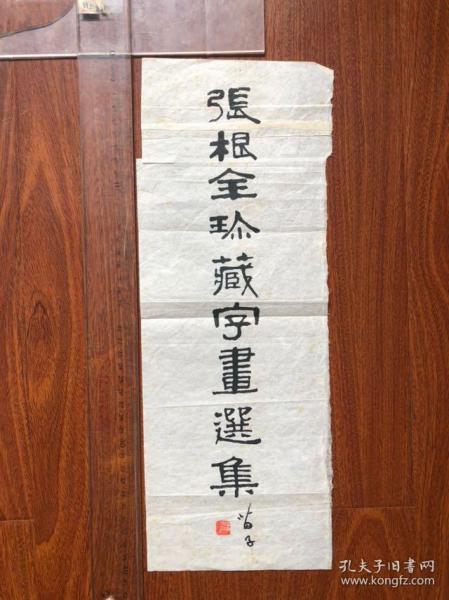 張根全珍藏字畫選集
孔夫子旧书网
www.kongfz.com